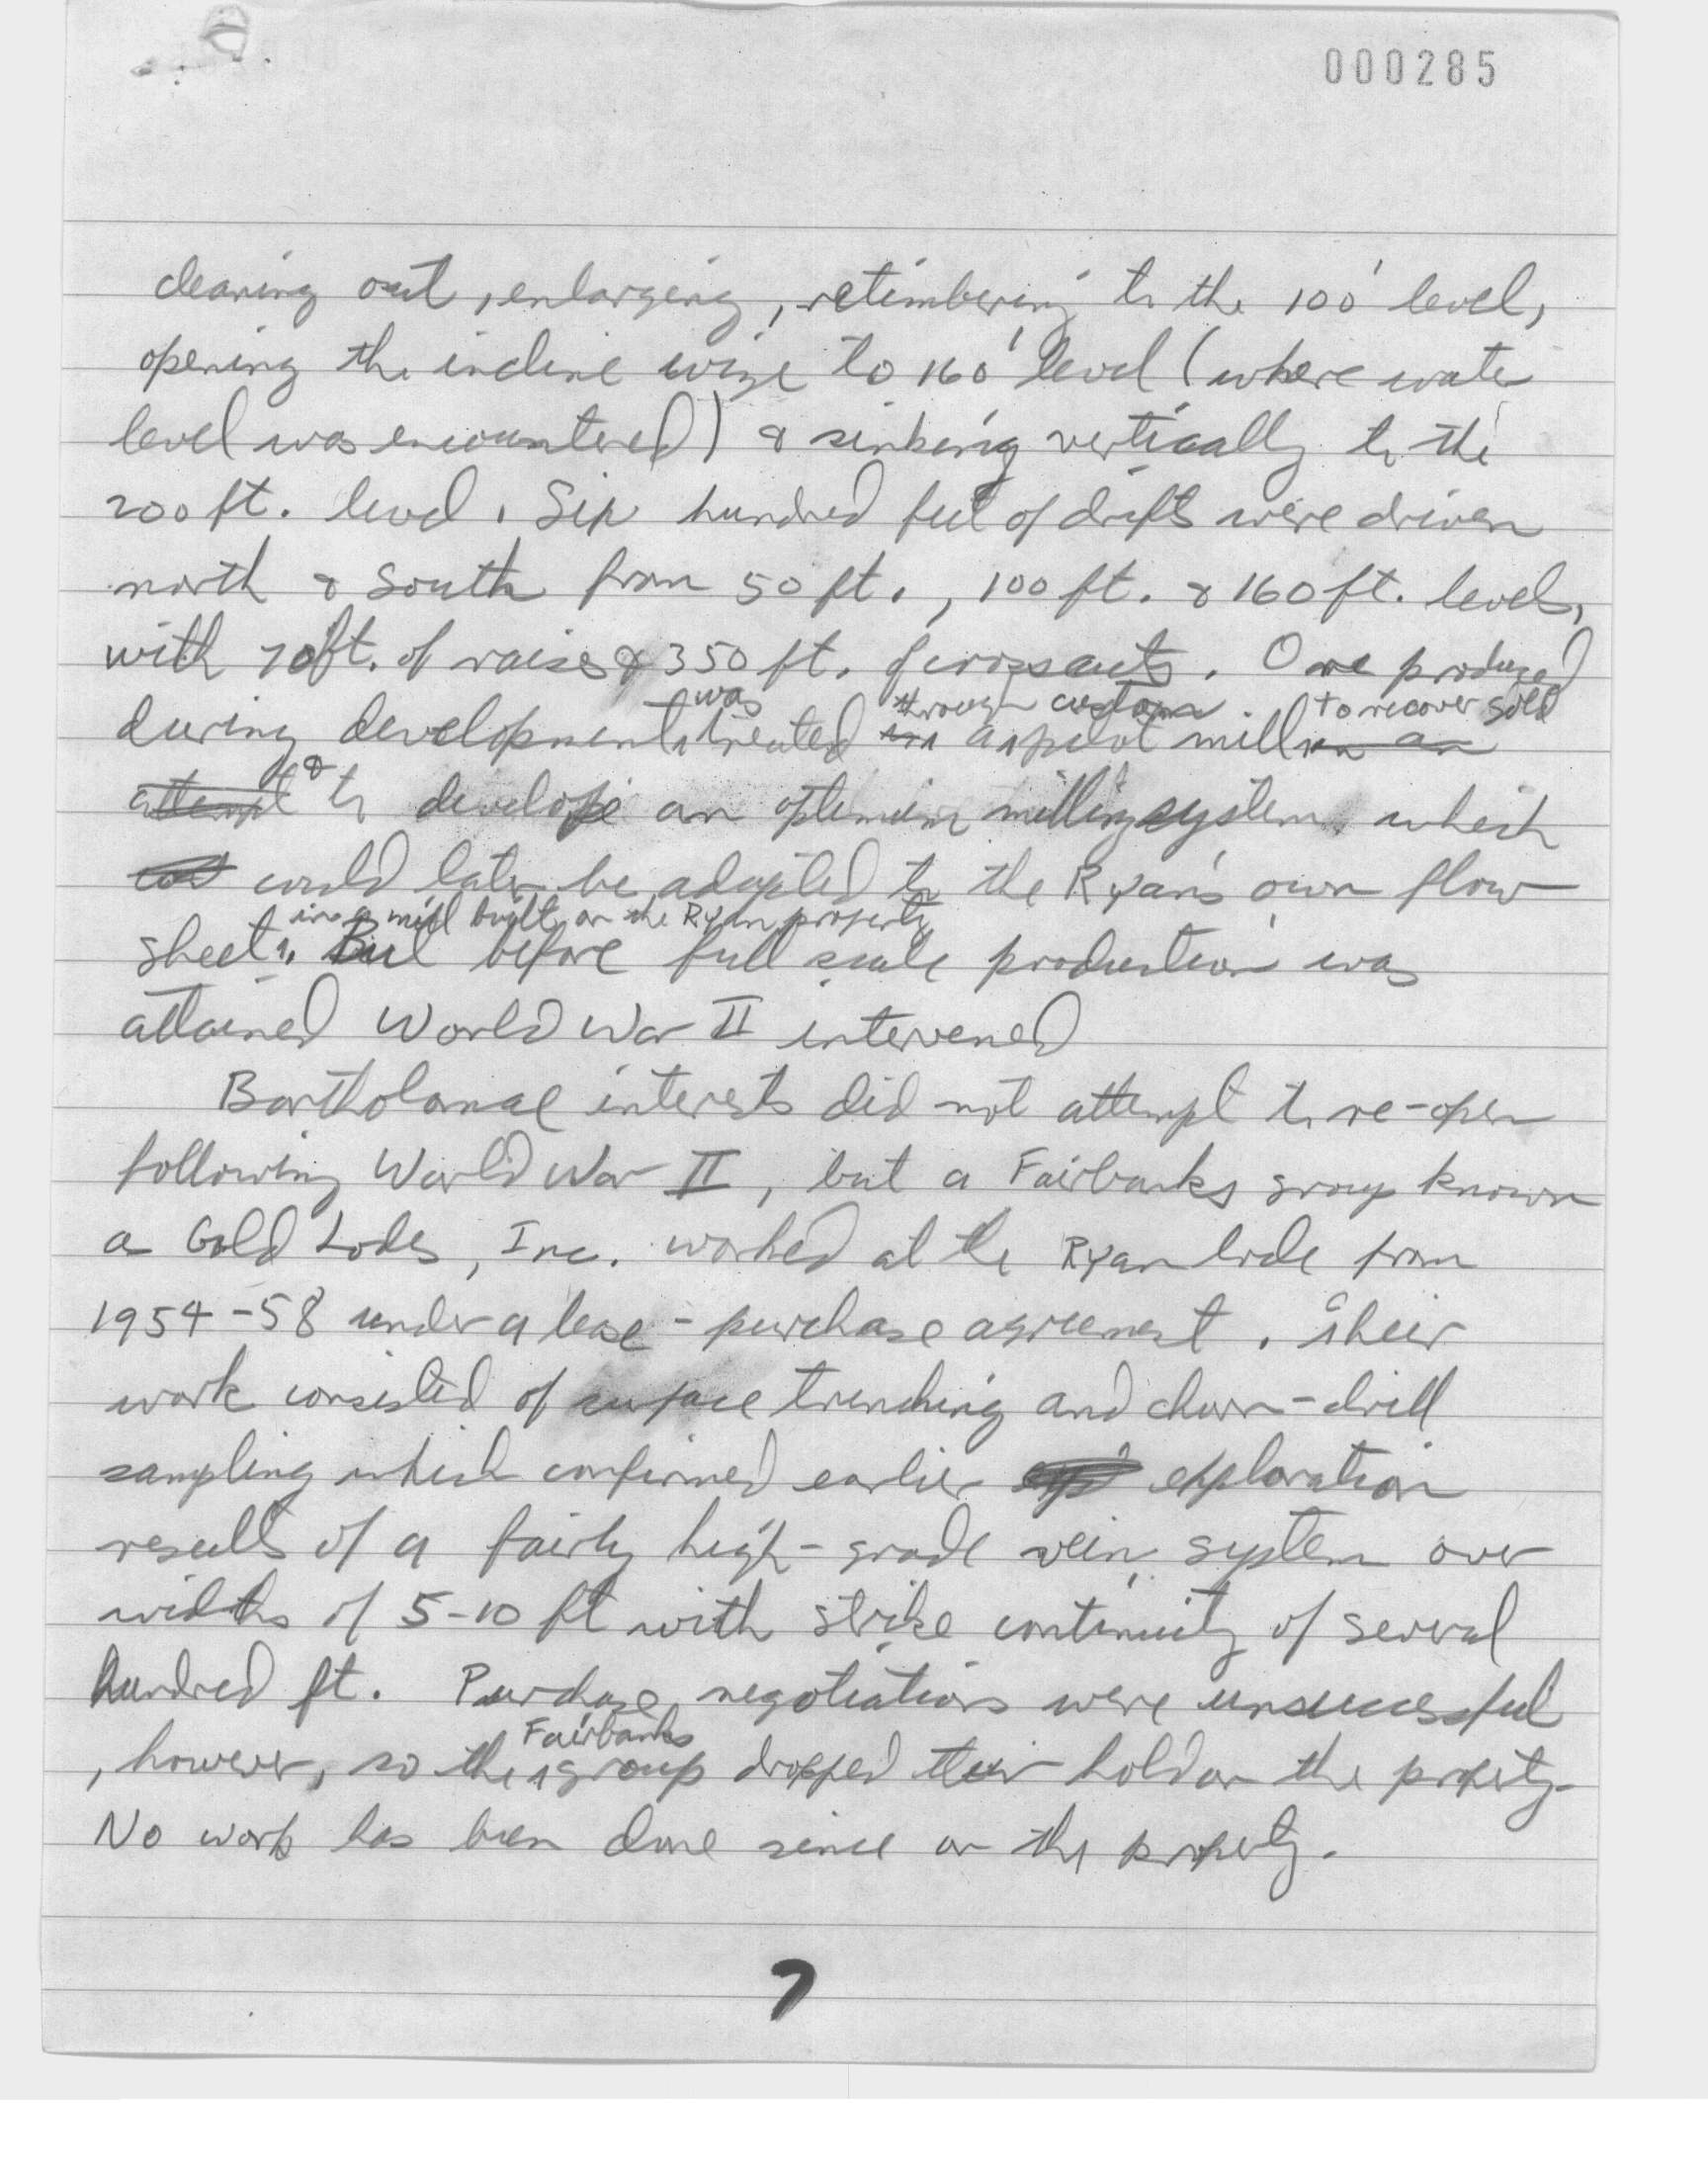 000285
clearing out, enlarging, retimbering to the 100' level,
opening the incline winze to 160' level (where water
level was encountered) & sinking vertically to the
200 ft. level. Six hundred feet of drifts were driven
north & south from 50 ft., 100 ft. & 160 ft. levels,
with 70 ft. of raises & 350 ft. of crosscuts. Ore produced
was through custom to recover gold
during development treated in a pilot mill in an
attempt & to develope an optimum milling system which
could later be adapted to the Ryan's own flow
in a mill built on the Ryan property
sheet. But before full scale production was
attained World War II intervened
Bartholomae interests did not attempt to re-open
following World War II, but a Fairbanks group known
as Gold Lodes, Inc. worked at the Ryan lode from
1954-58 under a lease-purchase agreement. Their
work consisted of surface trenching and churn-drill
sampling which confirmed earlier exploration
results of a fairly high-grade vein system over
widths of 5-10 ft with strike continuity of several
hundred ft. Purchase negotiations were unsuccessful
Fairbanks
, however, so the group dropped their hold on the property.
No work has been done since on the property.
7